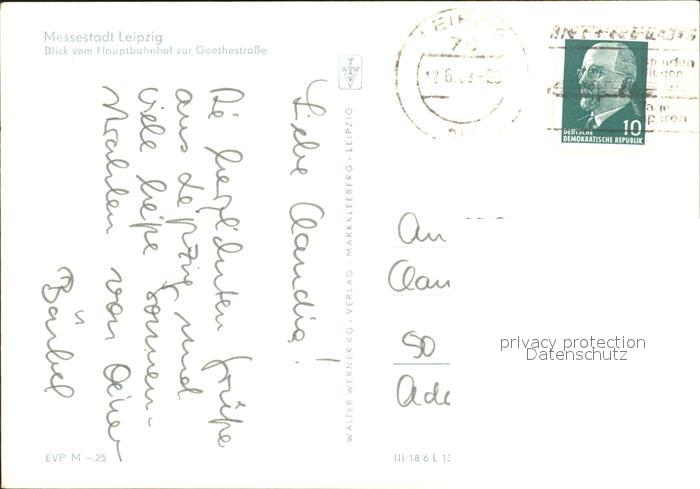 Messestadt Leipzig
Blick vom Hauptbahnhof zur Goethestraße
Liebe Claudia!
Die herzlichsten Grüße
aus Leipzig und
viele heiße Sonnen-
strahlen von Deiner
Bärbel
WALTER WERNER KG · VERLAG · MARKKLEEBERG · LEIPZIG
LEIPZIG
12.6.68-20
10
DEUTSCHE
DEMOKRATISCHE REPUBLIK
An
Clau
50
privacy protection
Datenschutz
EVP M -.25
III/18/6 L 13